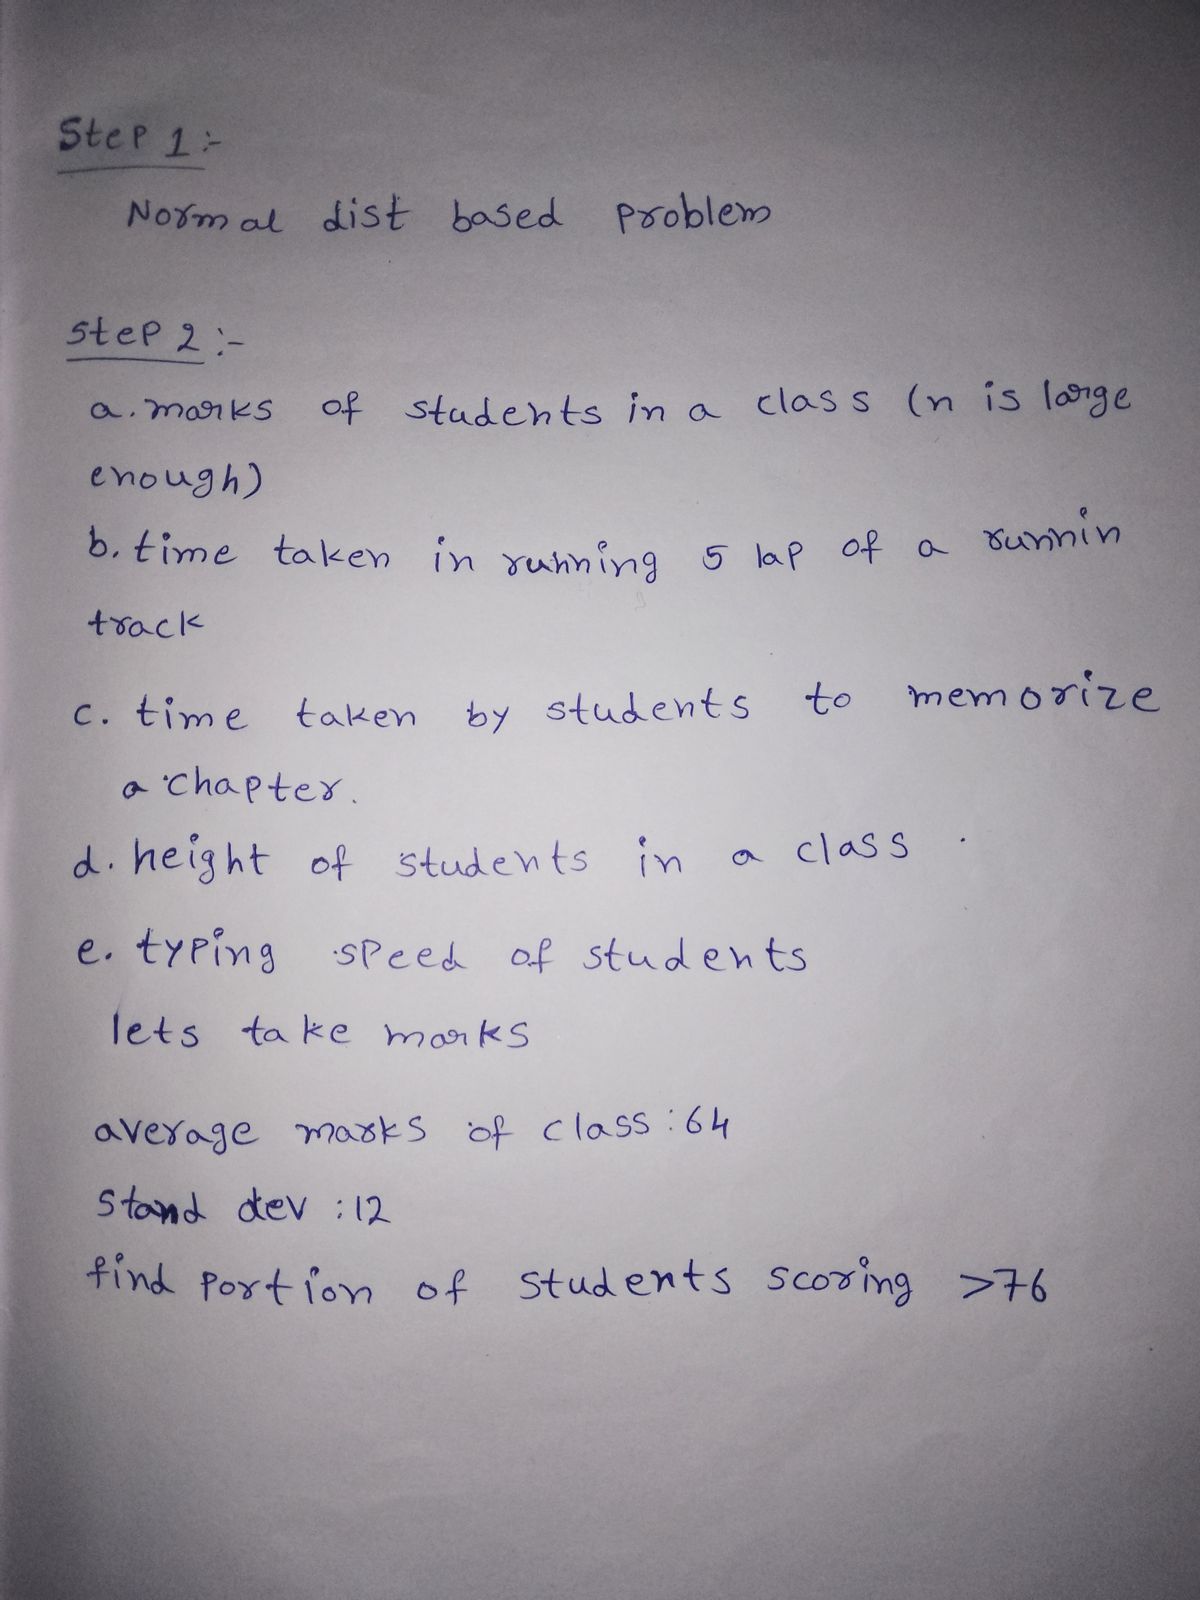 Step 1 :-
Normal dist based problem
step 2 :-
a. marks of students in a class (n is large
enough)
b. time taken in running 5 lap of a runnin
track
c. time taken by students to memorize
a chapter.
d. height of students in a class .
e. typing speed of students
lets take marks
average marks of class : 64
Stand dev : 12
find portion of students scoring >76